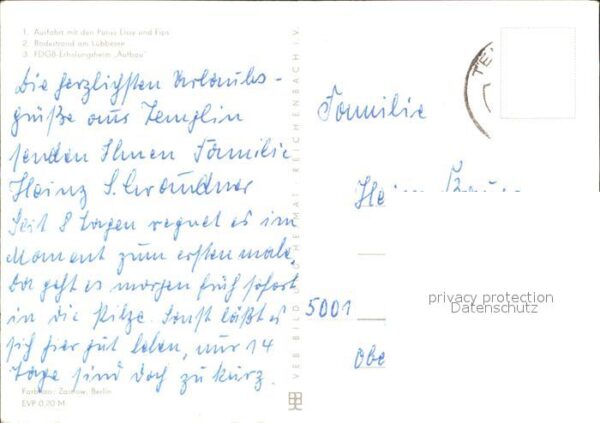 1. Ausfahrt mit den Ponys Liese und Fips
2. Badestrand am Lübbesee
3. FDGB-Erholungsheim „Aufbau"
Die herzlichsten Urlaubs-
grüße aus Templin
senden Ihnen Familie
Heinz
Seit 8 Tagen regnet es im
Moment zum ersten male,
da geht es morgen früh sofort
in die Pilze. Sonst läßt es
sich hier gut leben, nur 14
Tage sind doch zu kurz.
Farbfoto: Berlin
EVP 0,20 M
VEB BILD UND HEIMAT REICHENBACH I. V.
TE
Familie
5001
Obe
privacy protection
Datenschutz